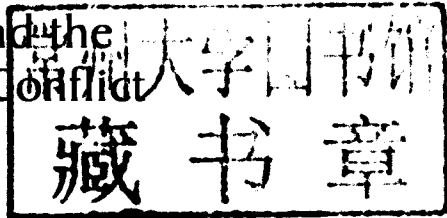 nd the
Conflict
常州大学图书馆
藏书章